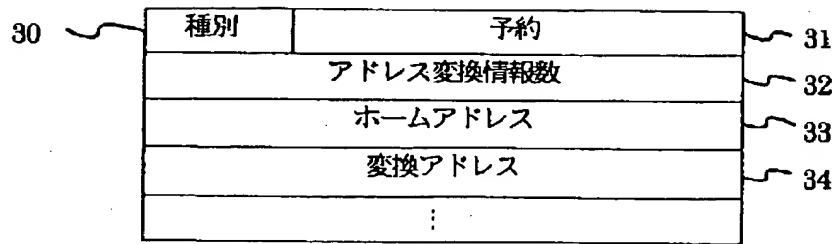 30 種別 予約 31
アドレス変換情報数 32
ホームアドレス 33
変換アドレス 34
⋮